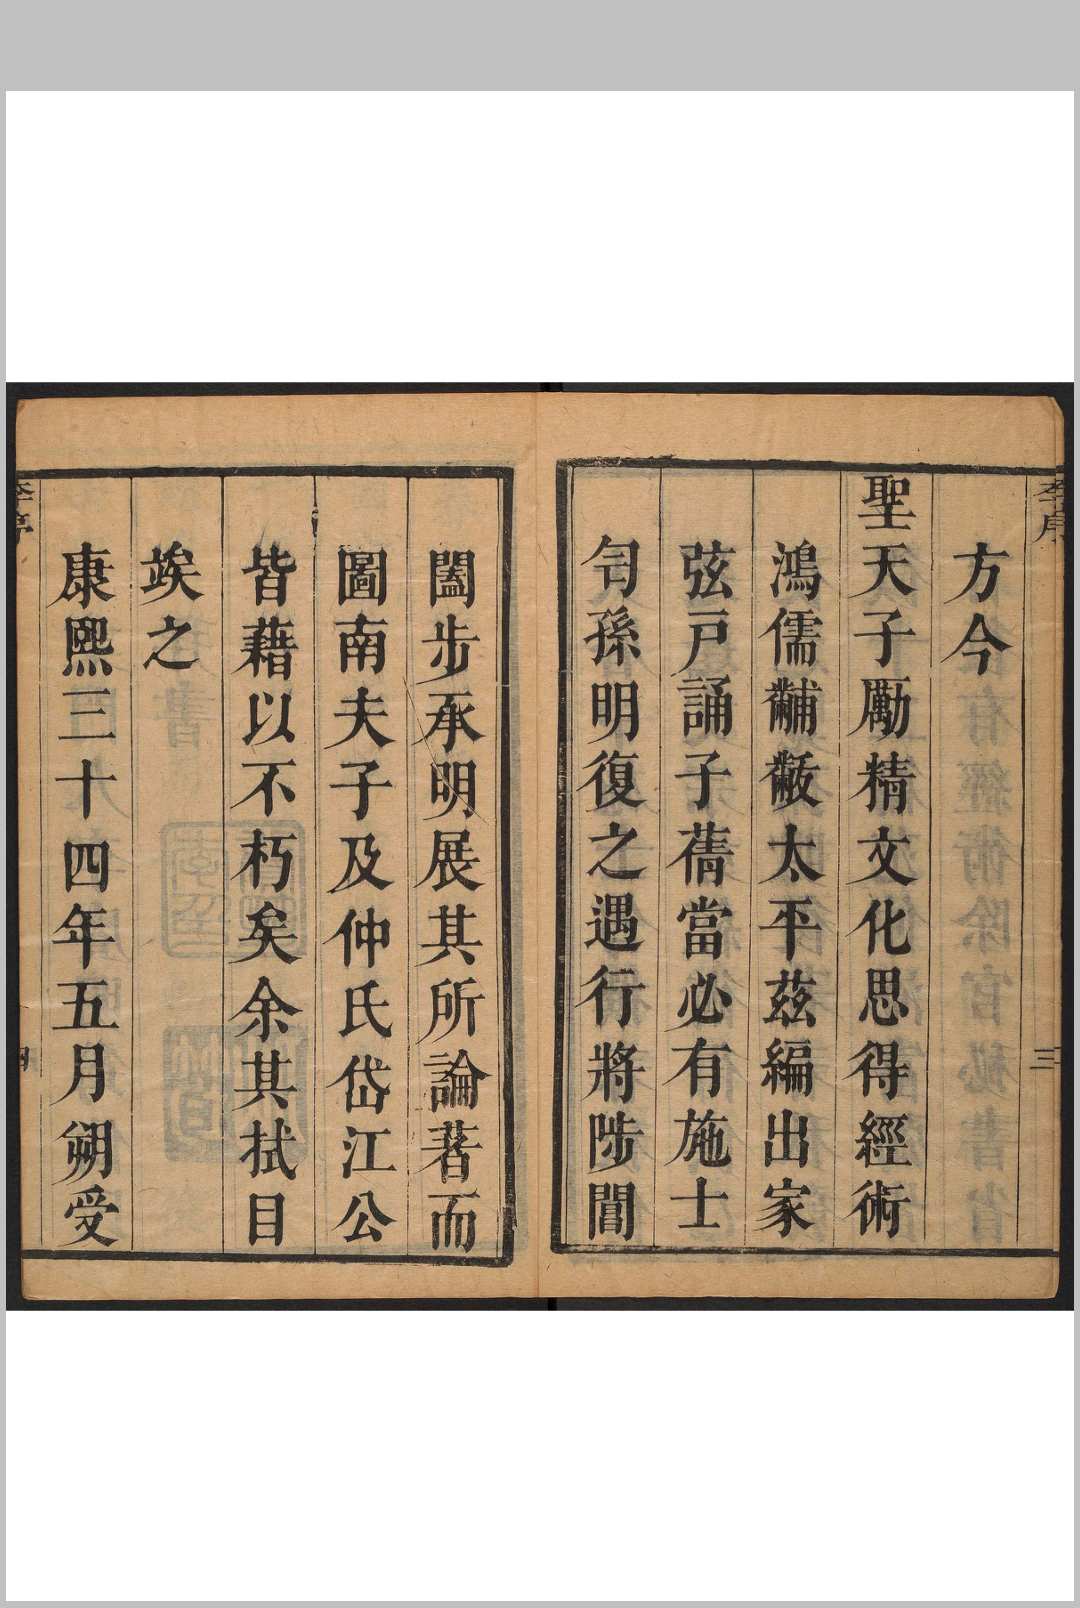 方今
聖天子勵精文化思得經術
鴻儒黼黻太平茲編出家
弦戶誦子蒨當必有施士
匄孫明復之遇行將陟閶
闔步承明展其所論著而
圖南夫子及仲氏岱江公
皆藉以不朽矣余其拭目
竢之
康熙三十四年五月朔受
李序
三
李序
四